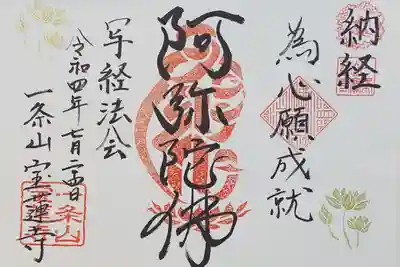 納経
為心願成就
阿弥陀佛
写経法会
令和四年七月二十四日
一条山宝蓮寺